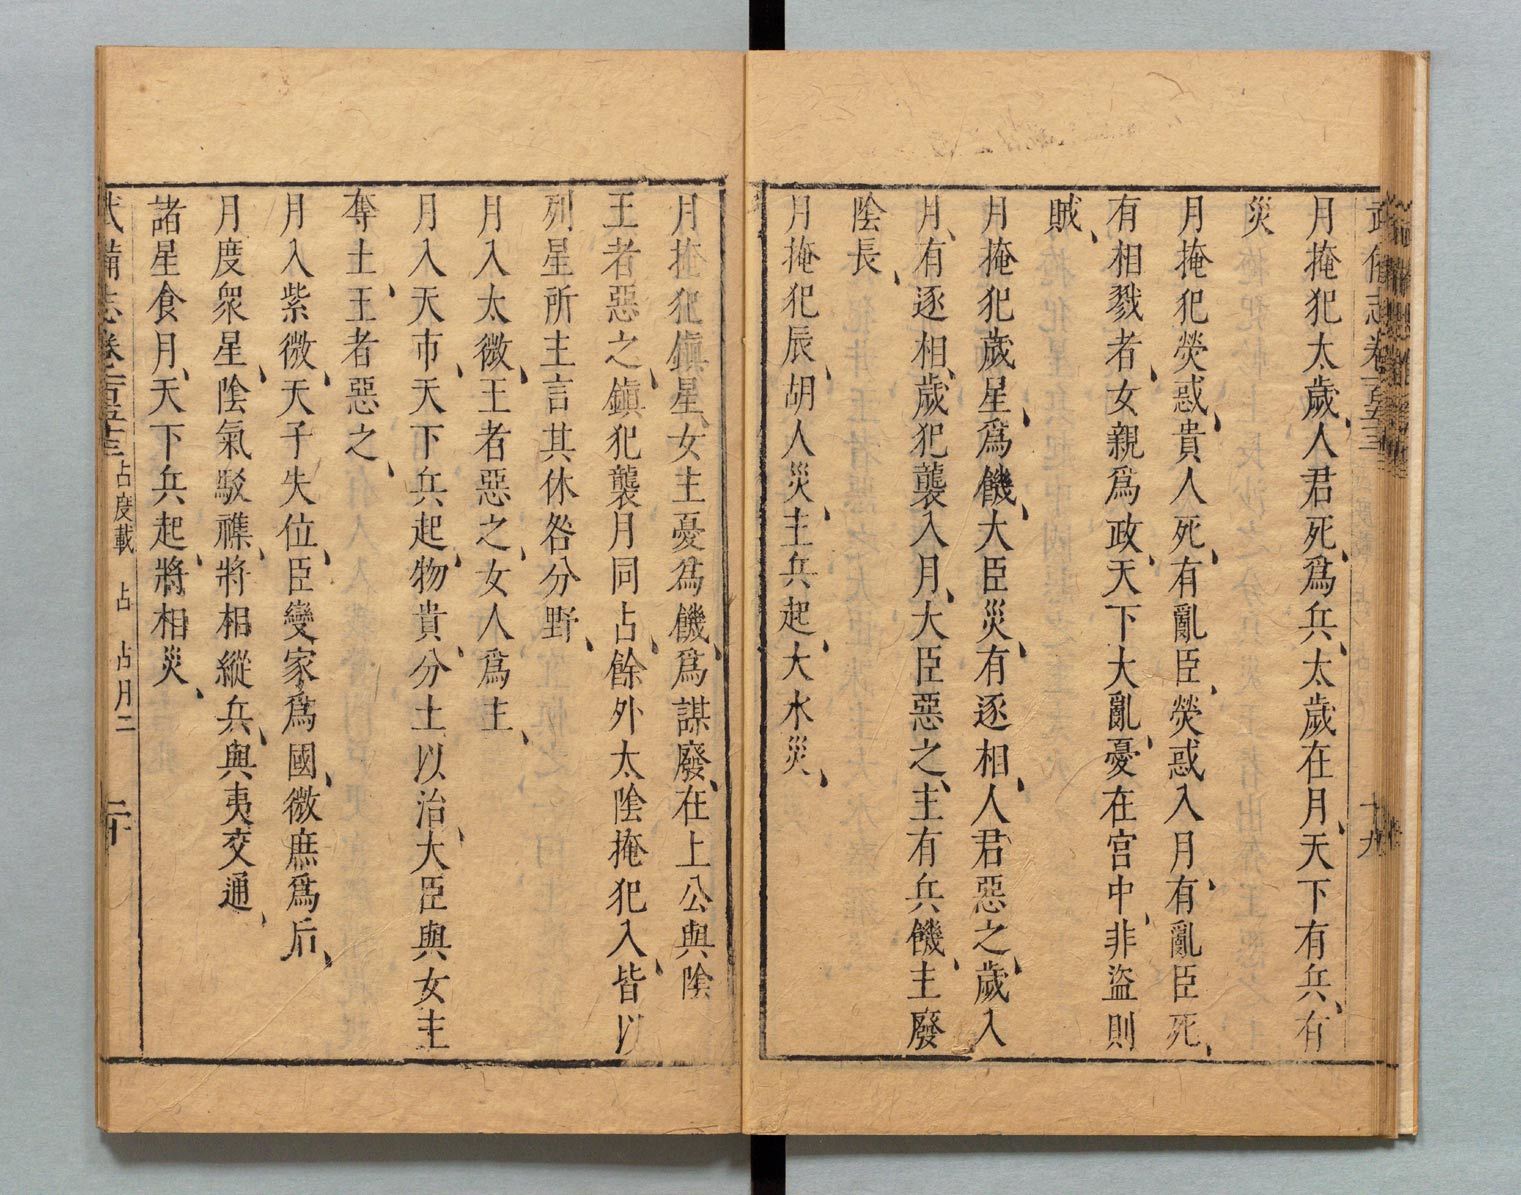 武備志卷一百五十三
十九
月掩犯太歲、人君死、爲兵、太歲在月、天下有兵、有
災
月掩犯熒惑、貴人死、有亂臣、熒惑入月、有亂臣死、
有相戮者、女親爲政、天下大亂、憂在宮中、非盜則
賊、
月掩犯歲星、爲饑、大臣災、有逐相、人君惡之、歲入
月、有逐相、歲犯襲入月、大臣惡之、主有兵饑、主廢
陰長、
月掩犯辰、胡人災、主兵起、大水災、
月掩犯鎭星、女主憂爲饑、爲謀廢、在上公與陰
王者惡之、鎭犯襲月同占、餘外太陰掩犯入、皆以
列星所主言其休咎分野、
月入太微、王者惡之、女人爲主、
月入天市、天下兵起、物貴、分土以治、大臣與女主
奪土、王者惡之、
月入紫微、天子失位、臣變家爲國、微庶爲后、
月度衆星、陰氣駁襍、將相縱兵、與夷交通、
諸星食月、天下兵起、將相災、
武備志卷一百五十三
占度載 占 占月二
二十